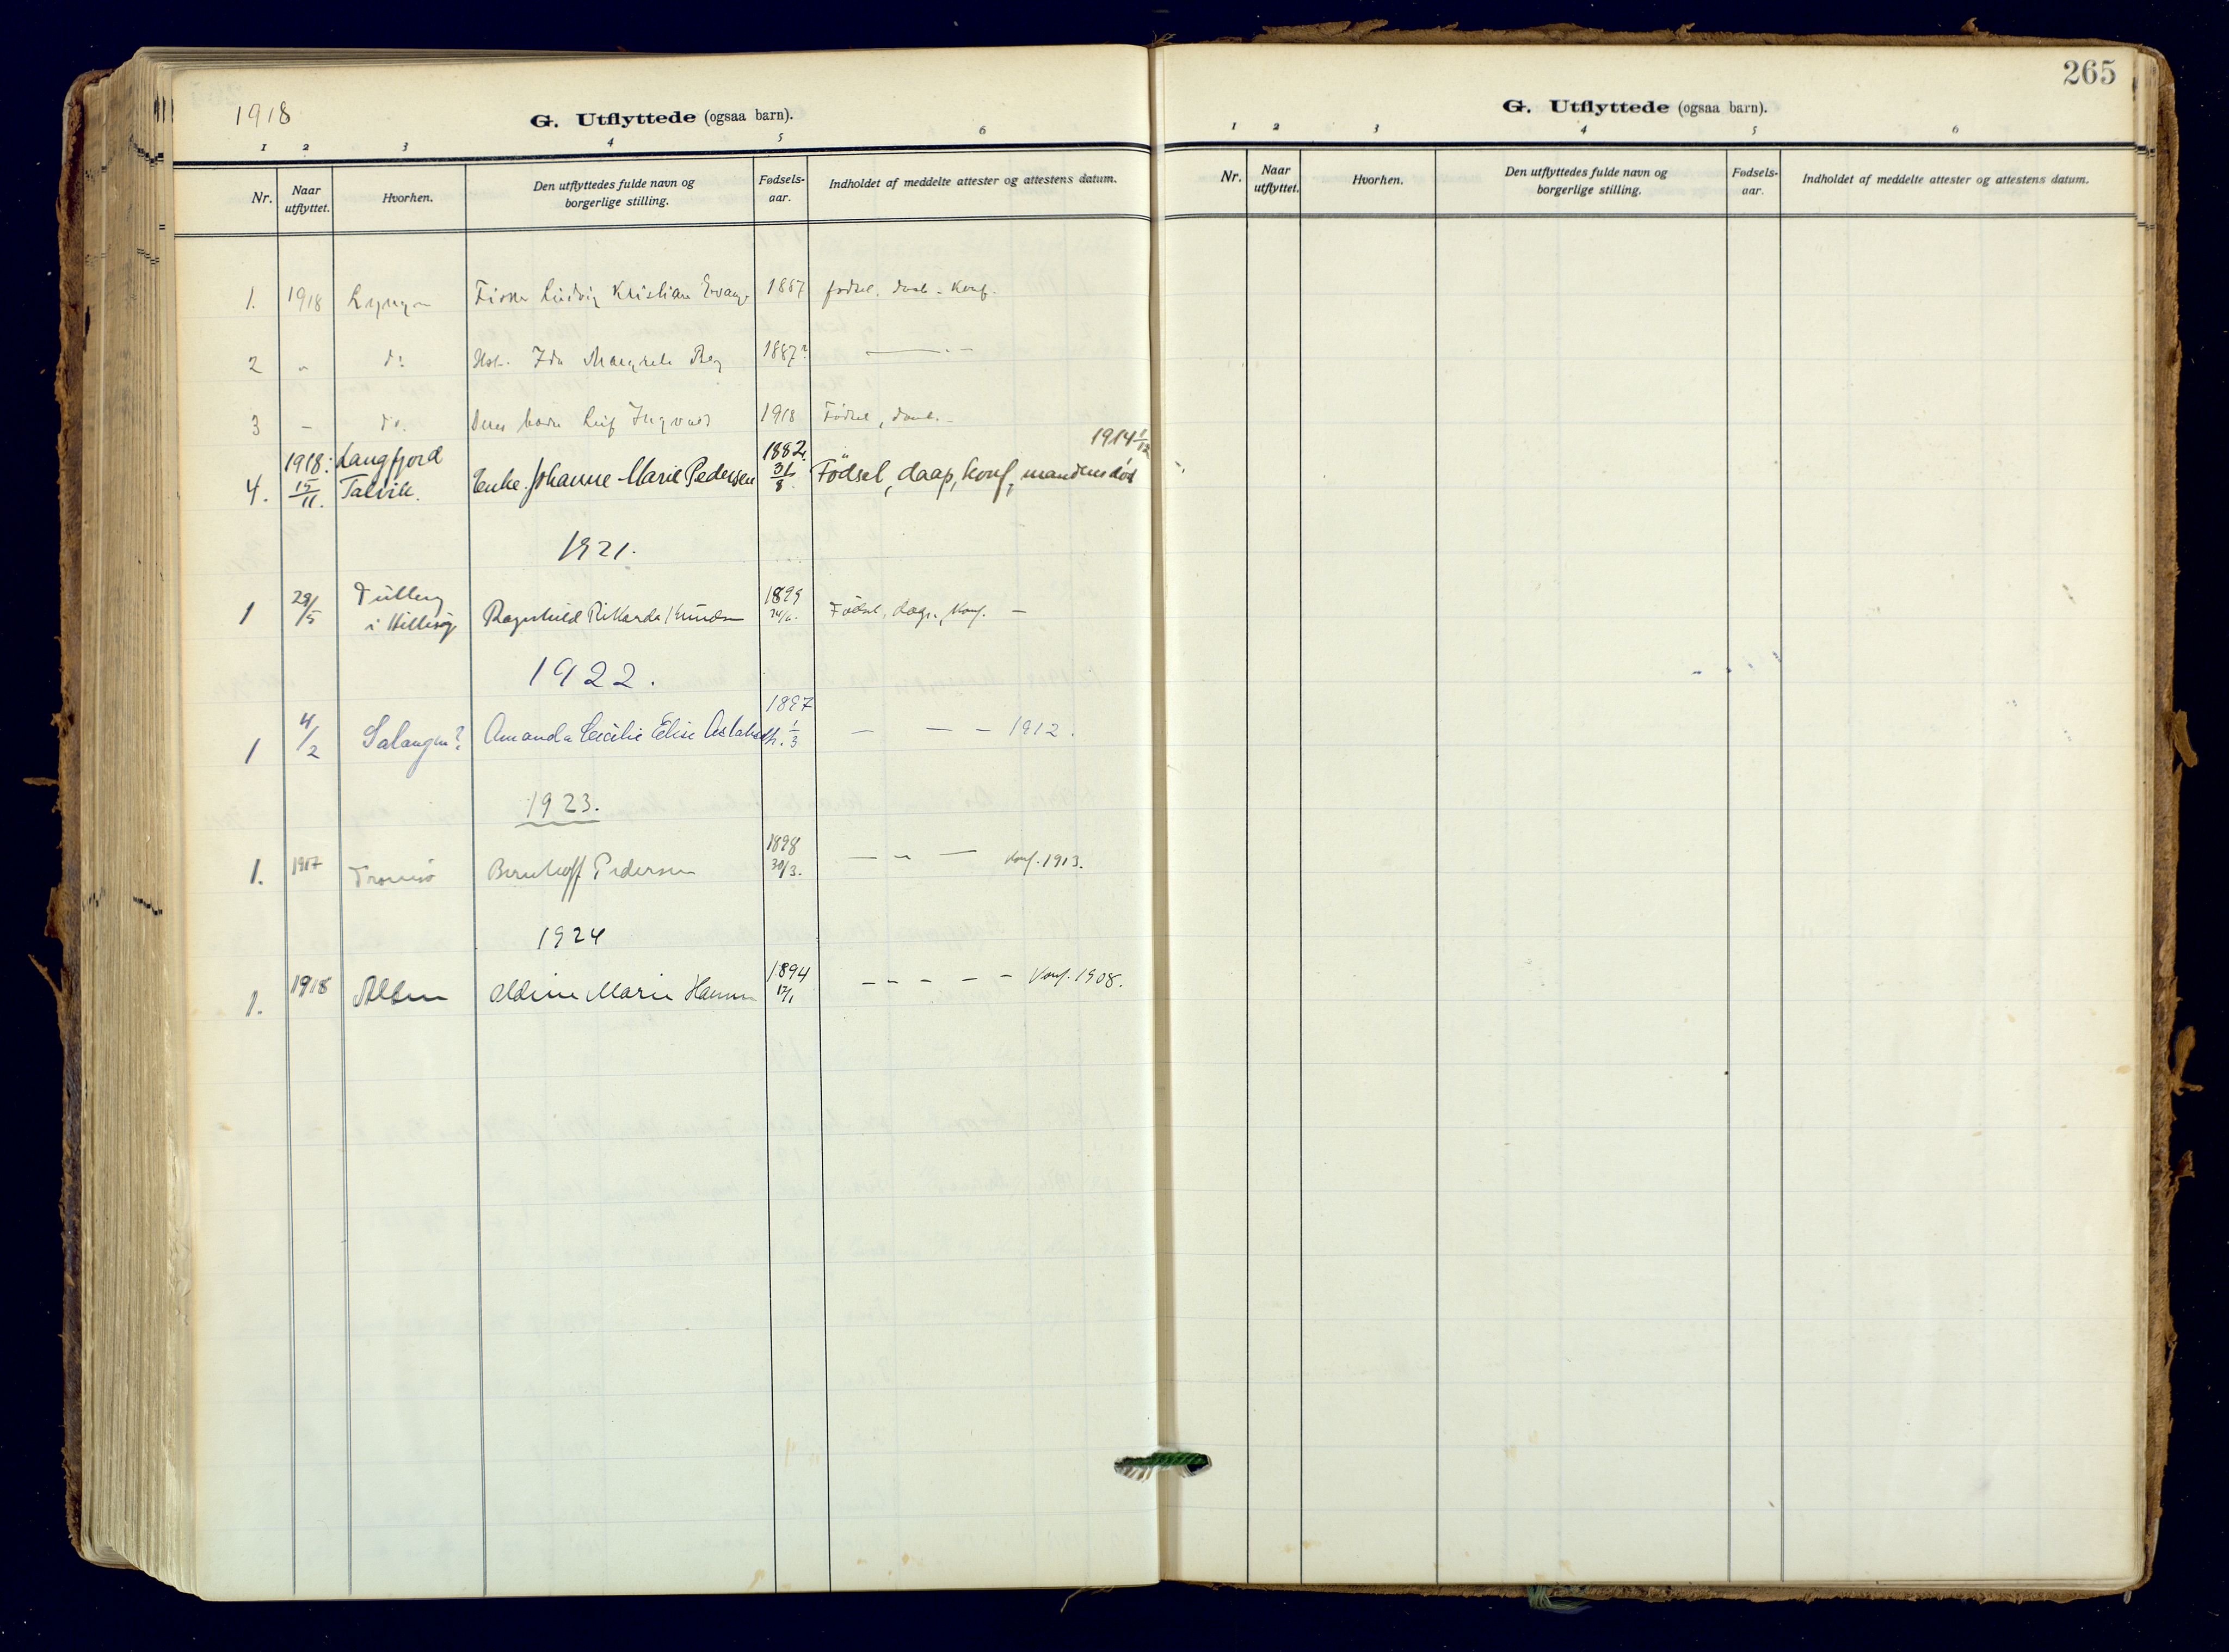 1918
G. Utflyttede (ogsaa barn).
1 2 3 4 5 6
Nr. Naar utflyttet. Hvorhen. Den utflyttedes fulde navn og borgerlige stilling. Fødsels-aar. Indholdet af meddelte attester og attestens datum.
1. 1918 Lyngen Fisker Ludvig Kristian 1887 fødsel, daab - konf.
2 " do Ida Margrete 1887? — " —
3 - do. Deres barn Leif Ingvald 1918 Fødsel, daab. -
1914 1/12
4. 1918: 15/11. Langfjord Talvik. Enke Johanne Marie Pedersen 1882. 31/8 Födsel, daap, konf, mandens død
1921.
1 29/5 i Hillesøy Ragnhild Rikarda Knudsen 1899 Födsel, daap, konf. —
1922.
1 4/2 Salangen? Amanda Cecilie Elise 1897 1/3 — — — 1912.
1923.
1. 1917 Tromsö Bernhoff Pedersen 1898 30/3. — - — konf. 1913.
1924
1. 1918 Alten Aldine Marie Hansen 1894 — - - — - konf. 1908.
265
G. Utflyttede (ogsaa barn).
1 2 3 4 5 6
Nr. Naar utflyttet. Hvorhen. Den utflyttedes fulde navn og borgerlige stilling. Fødsels-aar. Indholdet af meddelte attester og attestens datum.